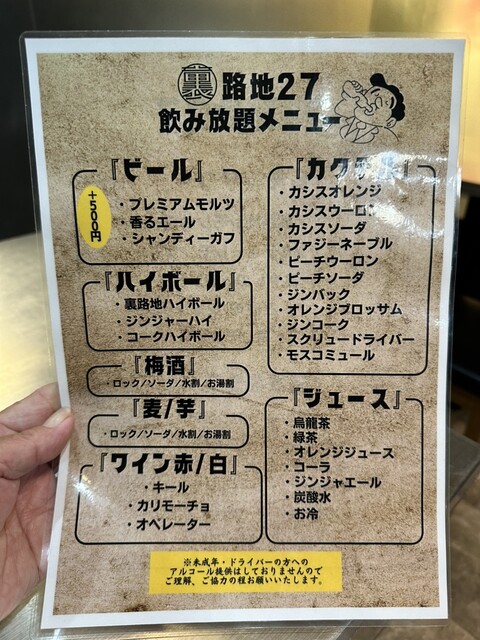 裏路地27
飲み放題メニュー
『ビール』
+500円
・プレミアムモルツ
・香るエール
・シャンディーガフ
『ハイボール』
・裏路地ハイボール
・ジンジャーハイ
・コークハイボール
『梅酒』
・ロック/ソーダ/水割/お湯割
『麦/芋』
・ロック/ソーダ/水割/お湯割
『ワイン赤/白』
・キール
・カリモーチョ
・オペレーター
『カクテル』
・カシスオレンジ
・カシスウーロン
・カシスソーダ
・ファジーネーブル
・ピーチウーロン
・ピーチソーダ
・ジンバック
・オレンジブロッサム
・ジンコーク
・スクリュードライバー
・モスコミュール
『ジュース』
・烏龍茶
・緑茶
・オレンジジュース
・コーラ
・ジンジャエール
・炭酸水
・お冷
※未成年・ドライバーの方への
アルコール提供はしておりませんので
ご理解、ご協力の程お願いいたします。